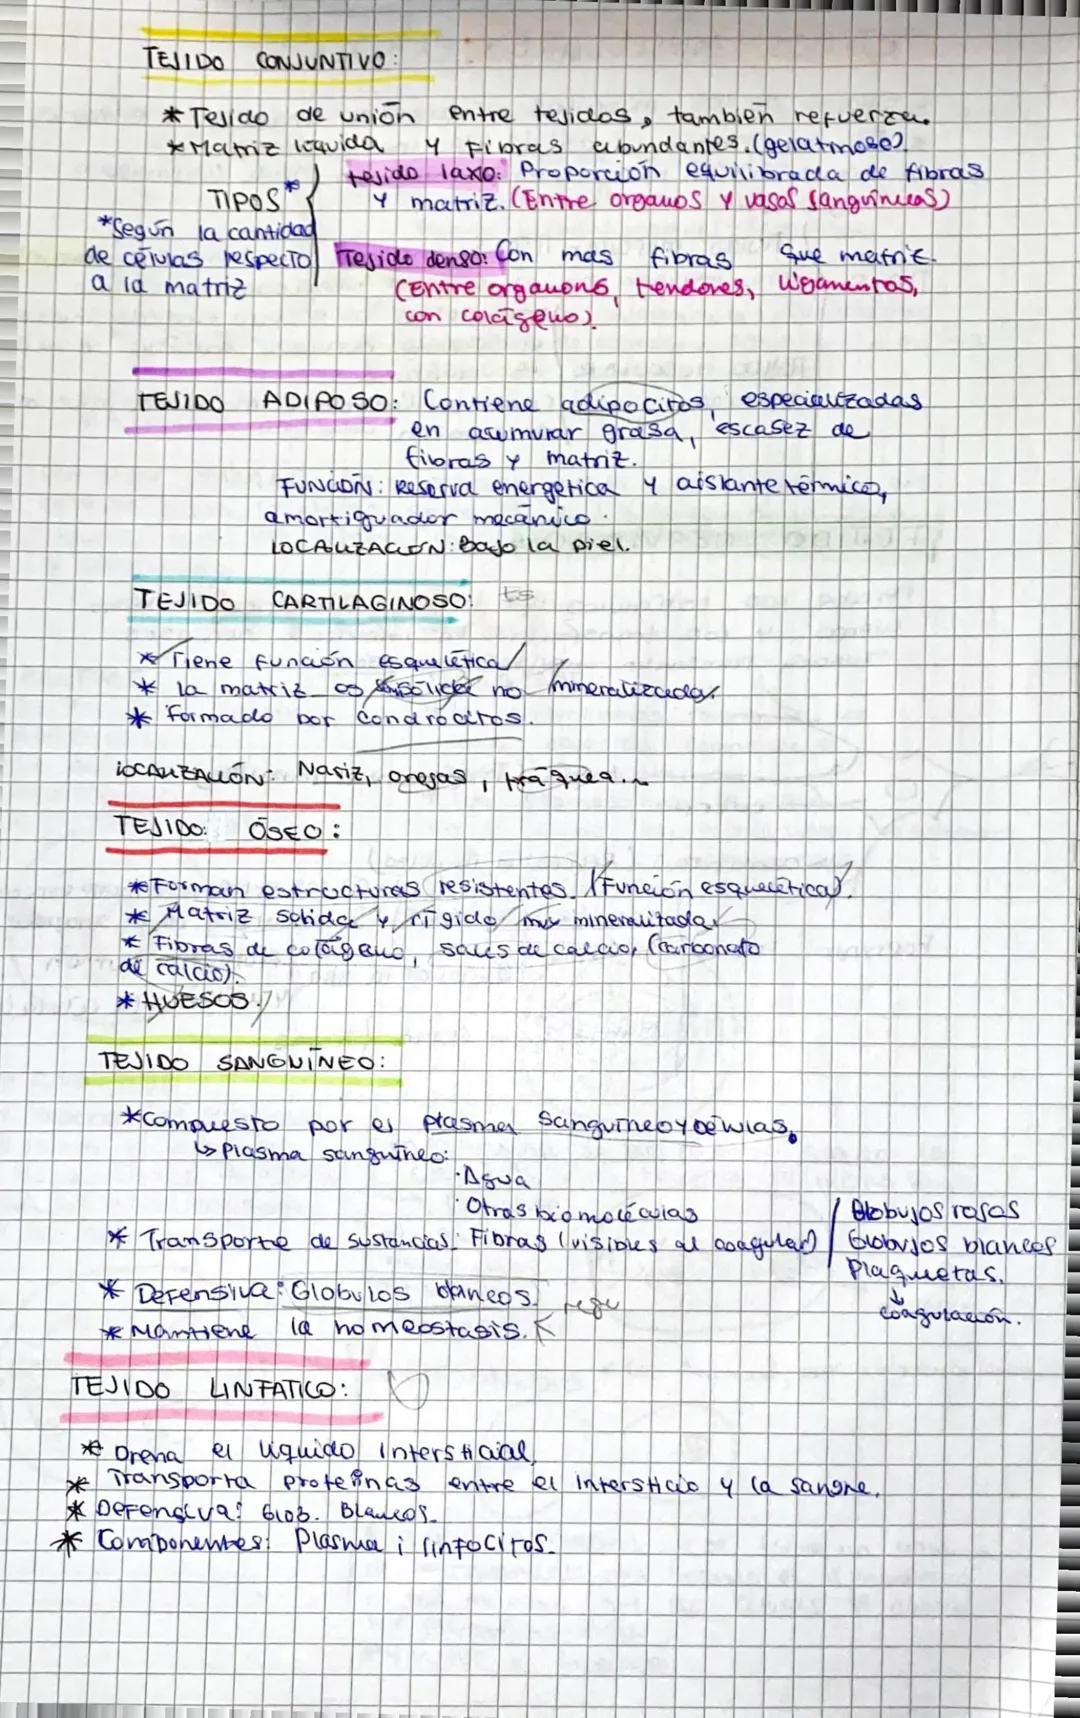 TEJIDO CONJUNTIVO:
* Tejido de unión entre tejidos, también refuerza.
* Matriz líquida y Fibras abundantes. (gelatinoso)
TIPOS*
*Según la cantidad
de células respecto
a la matriz
tejido laxo: Proporción equilibrada de fibras
y matriz. (Entre organos y vasos sanguíneos)
Tejido denso: Con mas fibras que matriz.
(Entre organons, tendones, ligamentos,
con colágeno).
TEJIDO ADIPOSO: Contiene adipocitos, especializadas
en acumular grasa, escasez de
fibras y matriz.
FUNCIÓN: Reserva energética y aislante térmico,
amortiguador mecánico.
LOCALIZACIÓN: Bajo la piel.
TEJIDO CARTILAGINOSO: ts
* Tiene función esquelética
* la matriz es sólida no mineralizada.
* Formado por condrocitos.
LOCALIZACIÓN: Nariz, orejas, tráquea...
TEJIDO: ÓSEO:
* Forman estructuras resistentes. (Función esquelética).
* Matriz solida y rígida muy mineralizada
* Fibras de colágeno, sales de calcio, (carbonato
de calcio).
* HUESOS.
TEJIDO SANGUÍNEO:
*Compuesto por el plasma sanguíneo y células.
↳ Plasma sanguíneo:
· Agua
· Otras biomoléculas
* Transporte de sustancias. Fibras (visibles al coagular)
Globujos rojos
Globujos blancos
Plaquetas.
↓
coagulación.
* Defensiva: Globulos blancos. regu
* Mantiene la homeostasis.
TEJIDO LINFATICO:
* Drena el líquido intersticial,
* Transporta proteínas entre el intersticio y la sangre.
* Defensiva: Glob. Blancos.
* Componentes: Plasma i linfocitos.